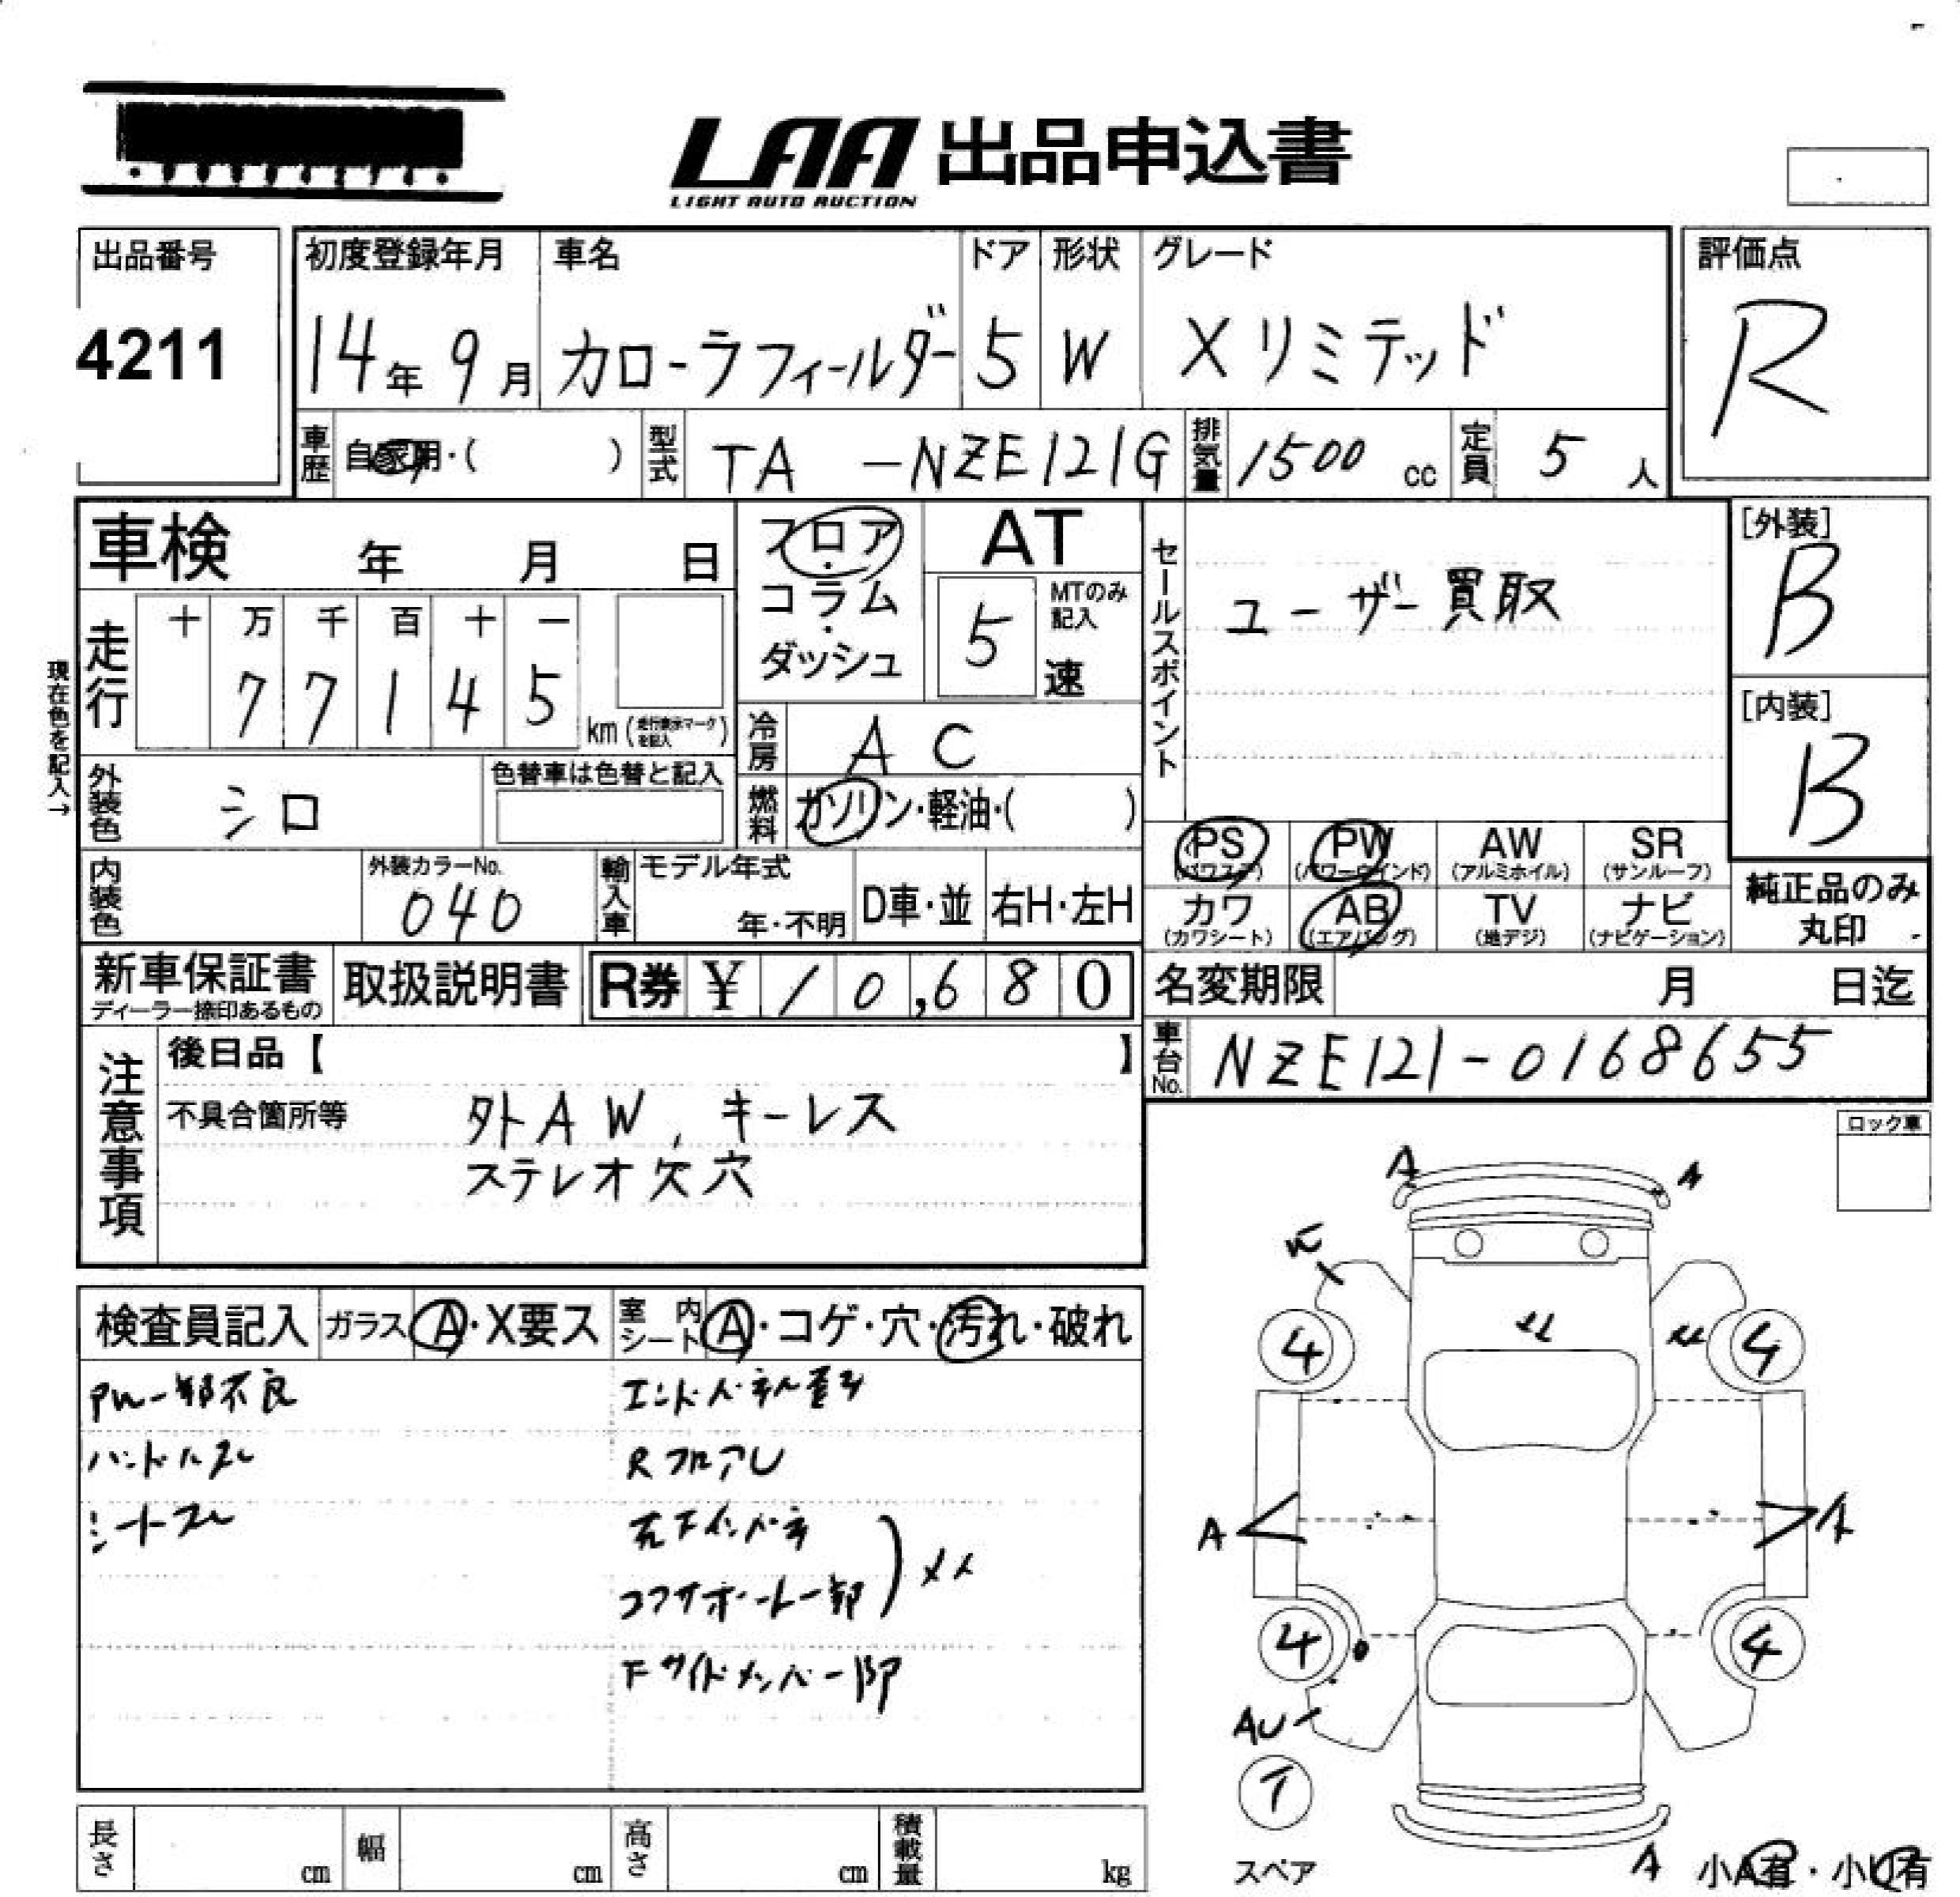 LAA 出品申込書
LIGHT AUTO AUCTION
出品番号
4211
初度登録年月
14年 9月
車名
カローラフィールダー
ドア
5
形状
W
グレード
Xリミテッド
評価点
R
車歴
自家用・( )
型式
TA -NZE121G
排気量
1500 cc
定員
5 人
車検 年 月 日
フロア・コラム・ダッシュ
AT
5
MTのみ記入
速
セールスポイント
ユーザー買取
[外装]
B
[内装]
B
現在色を記入→
走行
十 万 千 百 十 一
7 7 1 4 5
km (走行表示マークを記入)
冷房
A C
外装色
シロ
色替車は色替と記入
燃料
ガソリン・軽油・( )
PS (パワステ)
PW (パワーウインド)
AW (アルミホイル)
SR (サンルーフ)
カワ (カワシート)
AB (エアバッグ)
TV (地デジ)
ナビ (ナビゲーション)
純正品のみ
丸印
内装色
外装カラーNo.
040
輸入車
モデル年式
年・不明
D車・並
右H・左H
新車保証書
ディーラー捺印あるもの
取扱説明書
R券 ¥ 10,680
名変期限 月 日迄
車台No.
NZE121-0168655
注意事項
後日品【 】
不具合箇所等
外AW, キーレス
ステレオ欠穴
ロック車
検査員記入
ガラス A・X要ス
室内シート A・コゲ・穴・汚れ・破れ
PW一部不良
ハンドルスレ
シートスレ
エンドパネル歪み
RフロアU
コアサポート一部
Fサイドメンバー一部
A
A
4
4
A
A
4
4
AU
T
スペア
A
小A有・小U有
長さ cm
幅 cm
高さ cm
積載量 kg